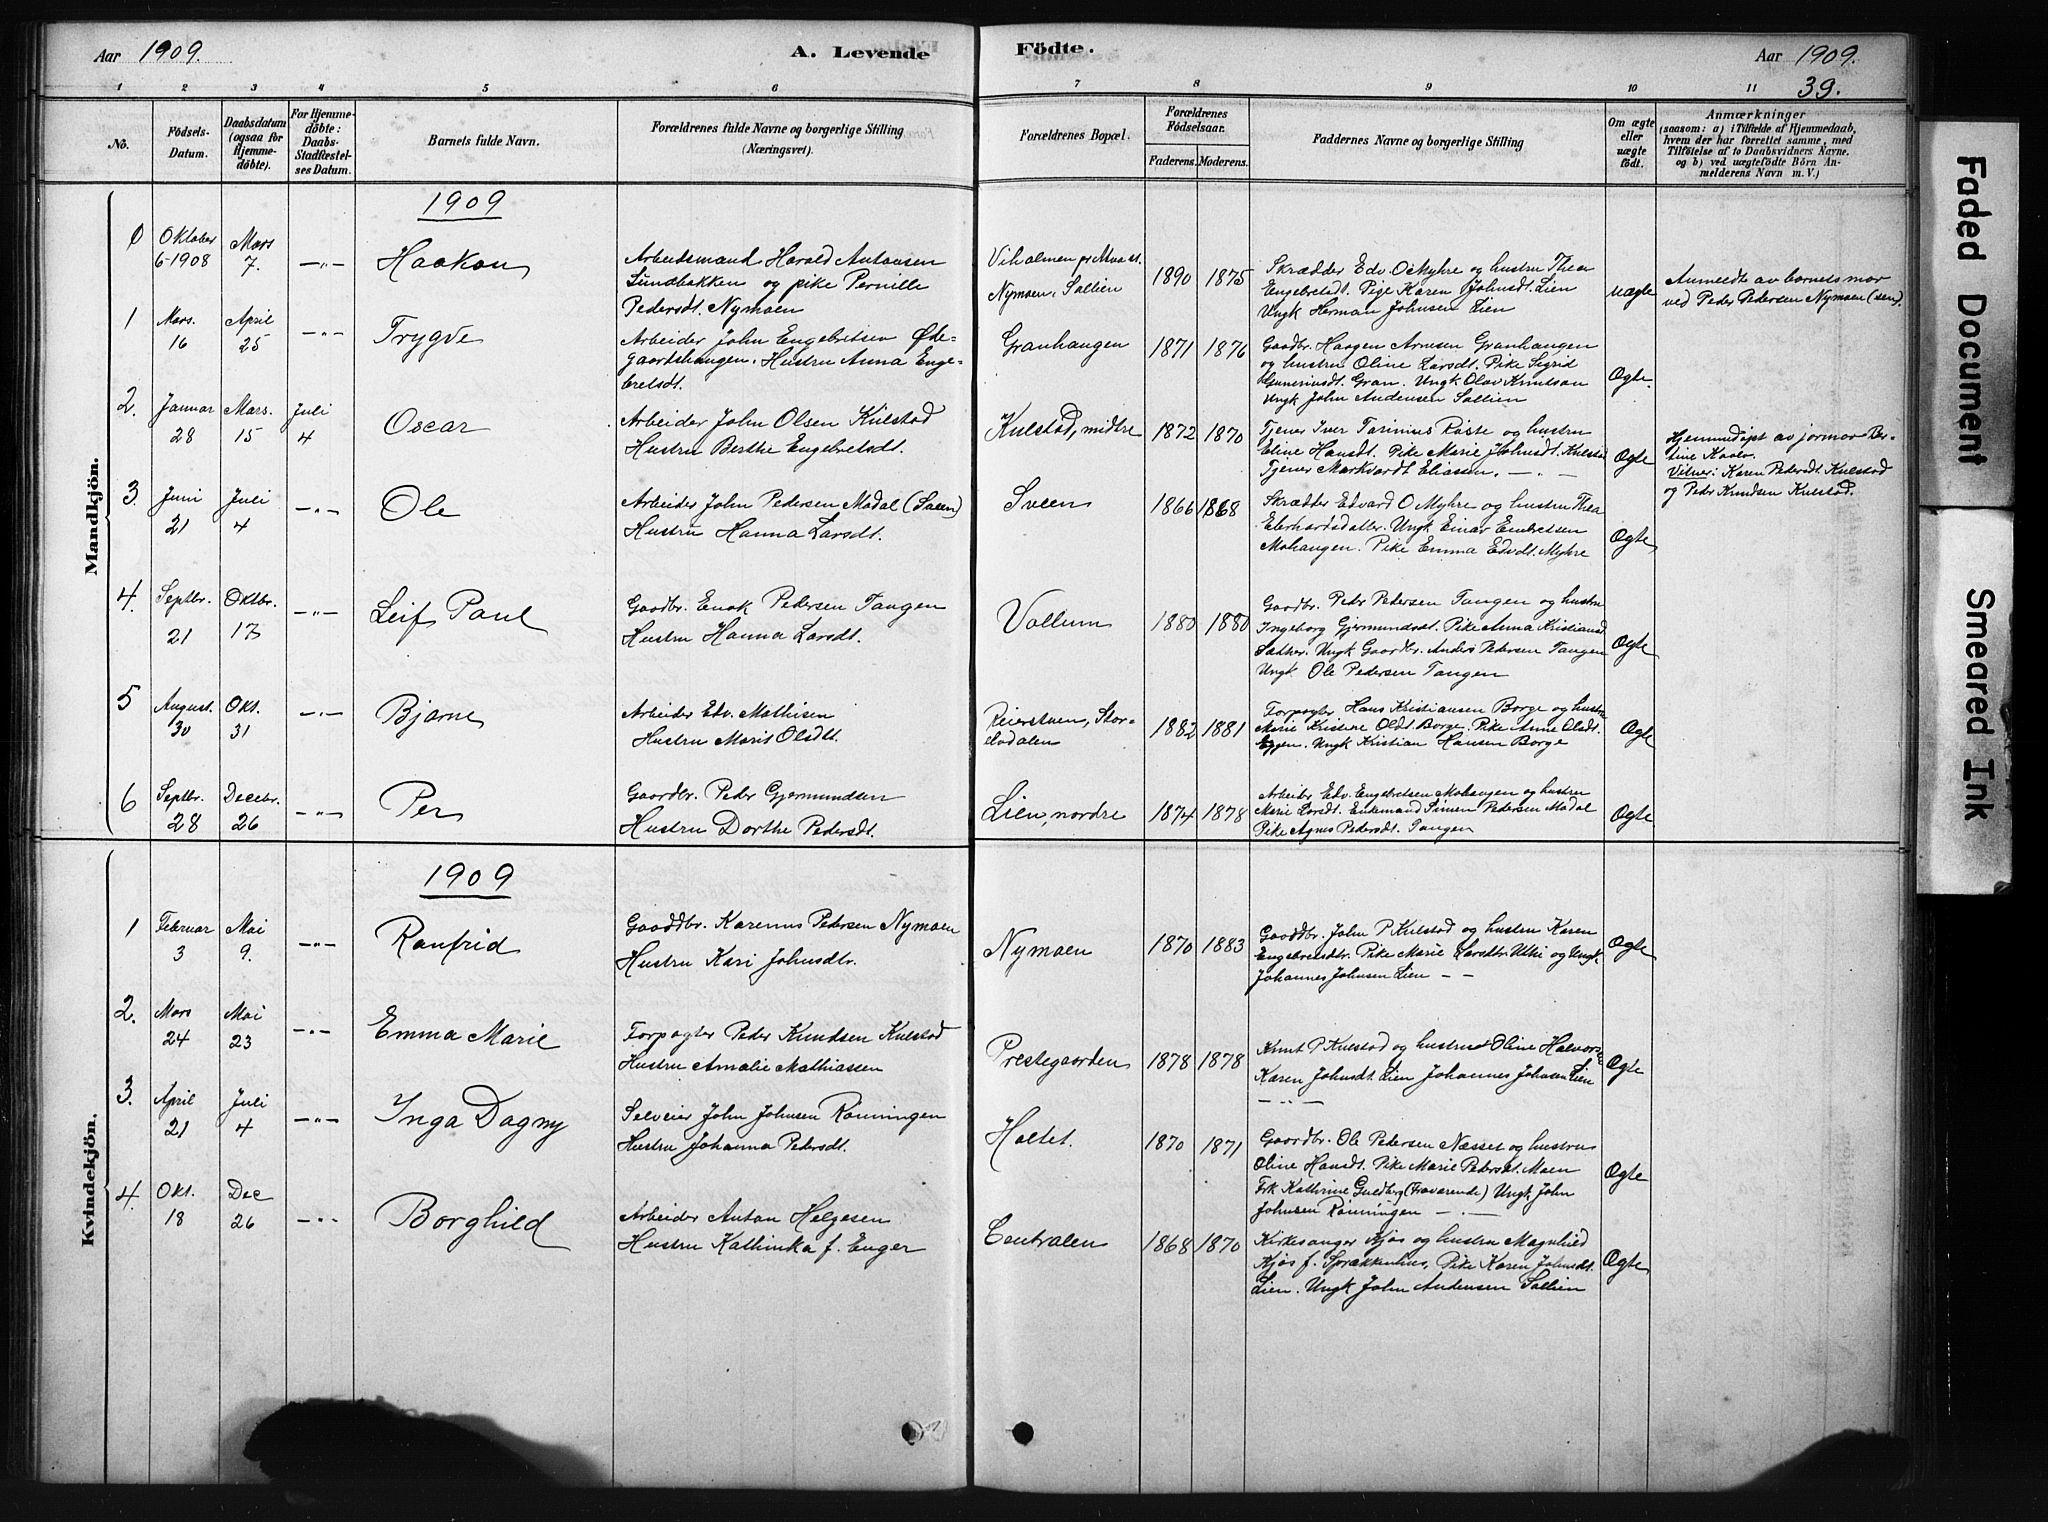 Aar 1909.
A. Levende
Födte.
Aar 1909.
39.
1 2 3 4 5 6 7 8 9 10 11
No.
Födsels-Datum.
Daabsdatum (ogsaa for Hjemmedöbte).
For Hjemmedöbte: Daabs-Stadfæstelses Datum.
Barnets fulde Navn.
Forældrenes fulde Navne og borgerlige Stilling (Næringsvei).
Forældrenes Bopæl.
Forældrenes Födselsaar.
Faderens. Moderens.
Faddernes Navne og borgerlige Stilling
Om ægte eller uægte födt.
Anmærkninger
(saasom: a) i Tilfælde af Hjemmedaab,
hvem der har forrettet samme, med
Tilföielse af to Daabsvidners Navne.
og b) ved uægtefödte Börn Anmelderens Navn m. V.)
Mandkjön.
1909
0 Oktober 6-1908 Mars 7. —„— Haakon
Arbeidsmand Harald Antonsen
Lundbakken og pike Pernille
Pedersdt. Nymoen
Nymoen, Sollien
1890 1875
Skrædder Edv. O Myhre og hustru Thea
Engebretsdt. Pige Karen Johnsdt. Lien
Ungk Herman Johnsen Lien
uægte
Anmeldt av barnets mor
ved Peder Pedersen Nymoen (sen).
1 Mars. 16 April 25 —„— Trygve
Arbeider John Engebretsen Øde-
gaardshaugen. Hustru Anna Enge-
bretsdt.
Granhaugen
1871 1876
Gaadbr. Haagen Arnesen Granhaugen
og hustru Oline Larsdt. Pike Sigrid
Guneriusdt. Gran. Ungk Olav Knutsan
Ungk John Andersen Sollien
Ægte.
2. Januar 28 Mars. 15 Juli 4 Oscar
Arbeider John Olsen Kulstad
Hustru Berthe Engebretsdt.
Kulstad, midtre
1872 1870
Tjener Iver Tarinius Røste og hustru
Eline Hansdt. Pike Marie Johnsdt. Kulstad
Tjener Markvardt Eliassen. —„—
Ægte
Hjemmedøpt av jormor Ber-
tine
Vitner: Karen Pedersdt. Kulstad
og Peder Knudsen Kulstad.
3. Juni 21 Juli 4 —„— Ole
Arbeider John Pedersen Modal (Sveen)
Hustru Hanna Larsdt.
Sveen
1866 1868
Skrædder Edvard O Myhre og hustru Thea
Eberhardsdatter. Ungk Einar Embretsen
Mohaugen. Pike Emma Edvdt. Myhre
Ægte
4. Septbr. 21 Oktbr. 17 —„— Leif Paul
Gaadbr. Enok Pedersen Tangen
Hustru Hanna Larsdt.
Vollum
1880 1880
Gaadbr. Peder Pedersen Tangen og hustru
Ingeborg Gjermundsdt. Pike Anna Kristiansd.
Sæther. Ungk Gaardbr. Anders Pedersen Tangen
Ungk Ole Pedersen Tangen
Ægte
5 August. 30 Okt. 31 —„— Bjarne
Arbeider Edv. Mathisen
Hustru Marit Olsdt.
1882 1881
Forpagter Hans Kristiansen Borge og hustru
Marie Kristine Olsdt. Borge. Pike Anne Olsdt.
Eggen. Ungk Kristian Hansen Borge
Ægte
6 Septbr. 28 Decebr. 26 —„— Per
Gaardbr. Peder Gjermundsen
Hustru Dorthe Pedersdt.
Lien, nordre
1874 1878
Arbeider Edv. Engebretsen Mohaugen og hustru
Marie Larsdt. Enkemand Simen Pedersen Modal
Pike Agnes Pedersdt. Tangen
Ægte
Kvindekjön.
1909
1 Februar 3 Mai 9. —„— Ranfrid
Gaardbr. Karenus Pedersen Nymoen
Hustru Kari Johnsdtr.
Nymoen
1870 1883
Gaardbr. John P Kulstad og hustru Karen
Engebretsdtr. Pike Marie Larsdtr. Utti og Ungk.
Johannes Johnsen Lien — —
Ægte
2. Mars 24 Mai 23 —„— Emma Marie
Forpagter Peder Knudsen Kulstad
Hustru Amalie Mathiassen
Prestegaarden
1878 1878
Knut P Kulstad og hustru Oline Halvorsen
Karen Johnsdt. Lien Johannes Johnsen Lien
—„—
Ægte
3. April 21 Juli 4 —„— Inga Dagny
Selveier John Johnsen Rønningen
Hustru Johanna Pedersdt.
Holtet.
1870 1871
Gaardbr. Ole Pedersen Næsset og hustru
Oline Hansdt. Pike Marie Pedersdt. Moen
Frk Kathrine Guldberg (Fraværende) Ungk John
Johnsen Rønningen —„—
Ægte
4. Okt. 18 Dec 26 —„— Borghild
Arbeider Anton Helgesen
Hustru Kathinka f. Enger
Centralen
1868 1870
Kirkesanger Kjøs og hustru Magnhild
Kjøs f. Sprækkenhus, Pike Karen Johnsdt.
Lien. Ungk John Andersen Sollien
Ægte
Faded Document
Smeared Ink